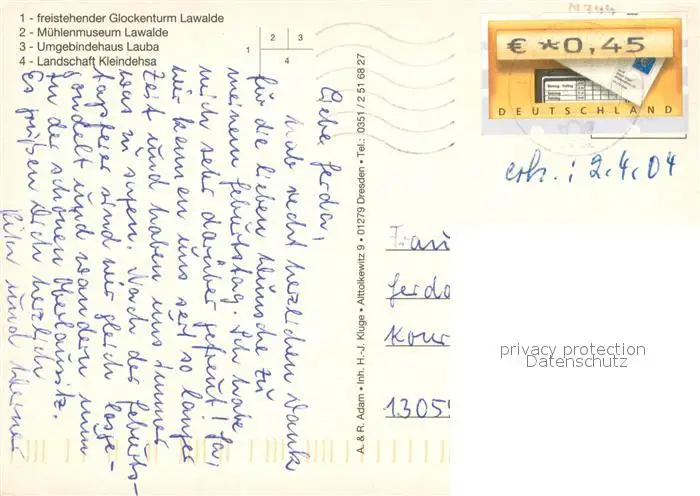 1 - freistehender Glockenturm Lawalde
2 - Mühlenmuseum Lawalde
3 - Umgebindehaus Lauba
4 - Landschaft Kleindehsa
1
2
3
4
€ *0,45
DEUTSCHLAND
erh.: 2.4.04
Liebe Gerda,
hab recht herzlichen Dank
für die lieben Wünsche zu
meinem Geburtstag. Ich habe
mich sehr darüber gefreut! Ja,
wir kennen uns seit so langer
Zeit und haben uns immer
was zu sagen. Nach der Geburts-
tagsfeier sind wir gleich losge-
und wandern nun
in der schönen Oberlausitz.
Es grüßen Dich herzlich
und Werner
A. & R. Adam • Inh. H.-J. Kluge • Alttolkewitz 9 • 01279 Dresden • Tel.: 0351 / 2 51 68 27
Frau
Gerda
Kour
13055
privacy protection
Datenschutz